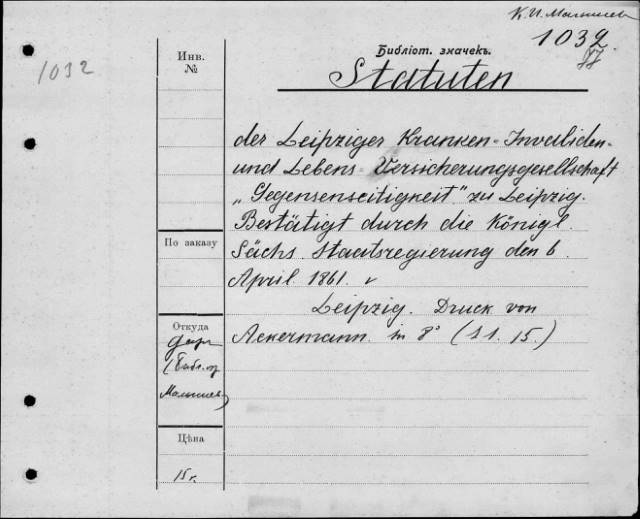 К. И. Малышев
1032
1032
Инв.
№
Библіот. значекъ.
Statuten
der Leipziger Kranken-Invaliden-
und Lebens-Versicherungsgesellschaft
„Gegensenseitigkeit" zu Leipzig.
Bestätigt durch die Königl.
Sächs. Staatsregierung den 6
April 1861.
Leipzig. Druck von
Ackermann. in 8° (S.S. 15.)
По заказу
Откуда
Дар
(Библ. пр
Малышев)
Цѣна
15 г.